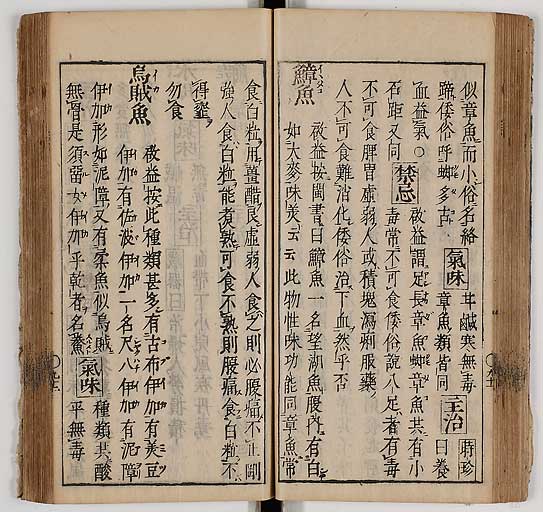 似章魚而小俗名絡 氣味 甘鹹寒無毒 主治 時珍
蹄倭俗呼蛸多古 章魚類皆同 曰養
血益氣○ 禁忌 啟益謂足長章魚蛸章魚共有小
石距又同 毒常不可食倭俗說八足者有毒
不可食脾胃虛弱人或積塊瀉痢服藥
人不可食難消化倭俗治下血然乎否
鱆魚 啟益按閩書曰鱆魚一名望潮魚腹內有白
如大麥味美云云此物性味功能同章魚常
食白粒用薑醋良虛弱人食之則必腹痛不止剛
強人食白粒能煮熟可食不熟則腹痛食白粒不
得
勿食
烏賊魚 啟益按此種類甚多有古布伊加有美豆
伊加有佐波伊加一名尺八伊加有泥障
伊加形如泥障又有柔魚似烏賊 氣味 種類共酸
無骨是須留女伊加乎乾者名鯗 平無毒